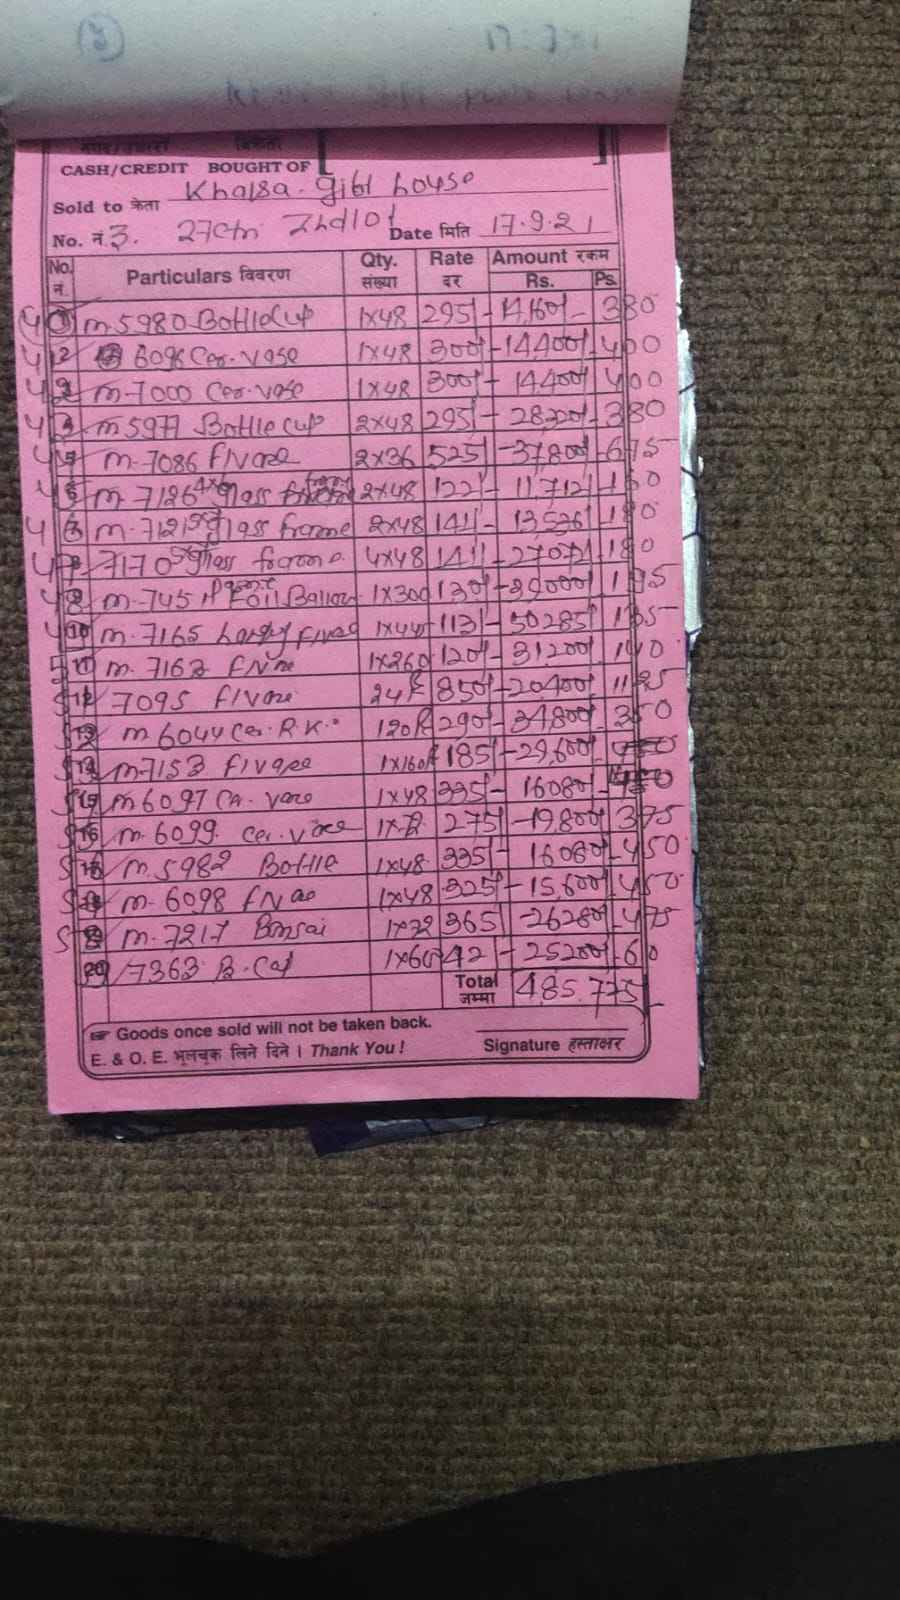 CASH/CREDIT BOUGHT OF
Sold to क्रेता Khalsa. gibt house
No. नं. 3. 27cm Date मिति 17.9.21
No. नं. Particulars विवरण Qty. संख्या Rate दर Amount रकम Rs. Ps.
1 m 5980 Bottle Cup 1x48 295/- 14,160/- 380
2 6095 Cer. vase 1x48 300/- 14,400/- 400
m-7000 Cer. vase 1x48 300/- 14,400/- 400
m 5977 Bottle cup 2x48 295/- 28320/- 380
m-7086 F/Vase 2x36 525/- 37,800/- 675
m-7126 Glass 2x48 122/- 11,712/-
m-7121 Glass frame 2x48 141/- 13,536/- 180
7170 Glass frame 4x48 141/- 27072/- 180
m-7451 Foil Ballon 1x300 130/- 39000/- 175
10 m. 7165 F/Vase 1x445 113/- 50285/-
11 m. 7163 F/Vase 1x260 120/- 31,200/- 140
12 7095 F/Vase 24 850/- 20400/- 1125
13 m 6044 Cer. R.K. 120 290/- 34,800/- 350
14 m-7153 F/vase 1x160 185/- 29,600/-
15 m 6097 Ce. vase 1x48 335/- 16080/-
16 m. 6099. Cer. vase 1x72 275/- 19,800/- 375
m. 5982 Bottle 1x48 335/- 16080/- 450
m- 6098 F/Vase 1x48 325/- 15,600/- 450
m. 7217 Bonsai 1x72 365/- 26280/- 475
20 7363 B. Cat 1x600 42/- 25200/- 60
Total जम्मा 485.775/-
☞ Goods once sold will not be taken back.
E. & O. E. भूलचुक लिने दिने । Thank You ! Signature हस्ताक्षर